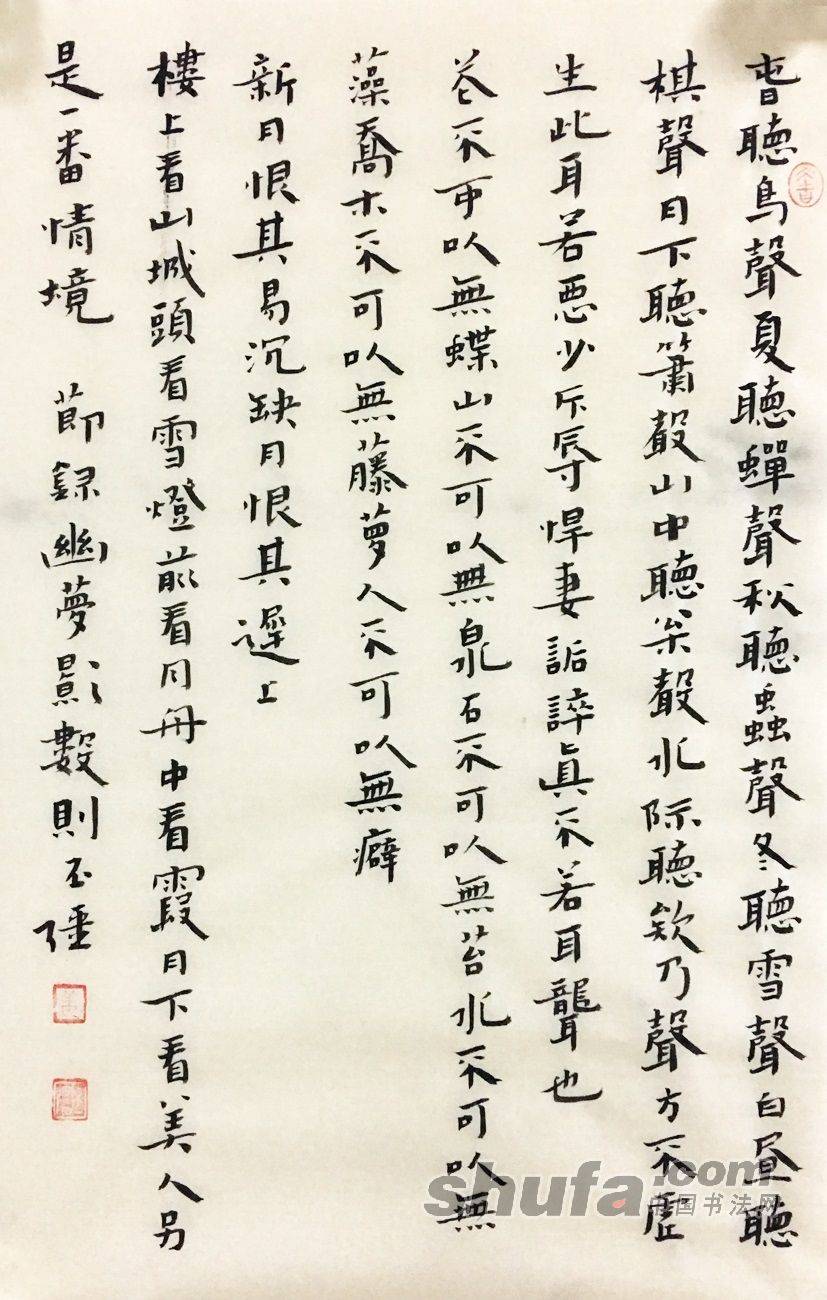 旾聽鳥聲夏聽蟬聲秋聽蟲聲冬聽雪聲白晝聽
棋聲月下聽簫聲山中聽松聲水际聽欸乃聲方不虛
生此耳若惡少斥辱悍妻詬誶真不若耳聾也
花不可以無蝶山不可以無泉石不可以無苔水不可以無
藻喬木不可以無藤蘿人不可以無癖
新月恨其易沉缺月恨其遲上
樓上看山城頭看雪燈前看月舟中看霞月下看美人另
是一番情境 節錄幽夢影數則
shufa.com
中国书法网